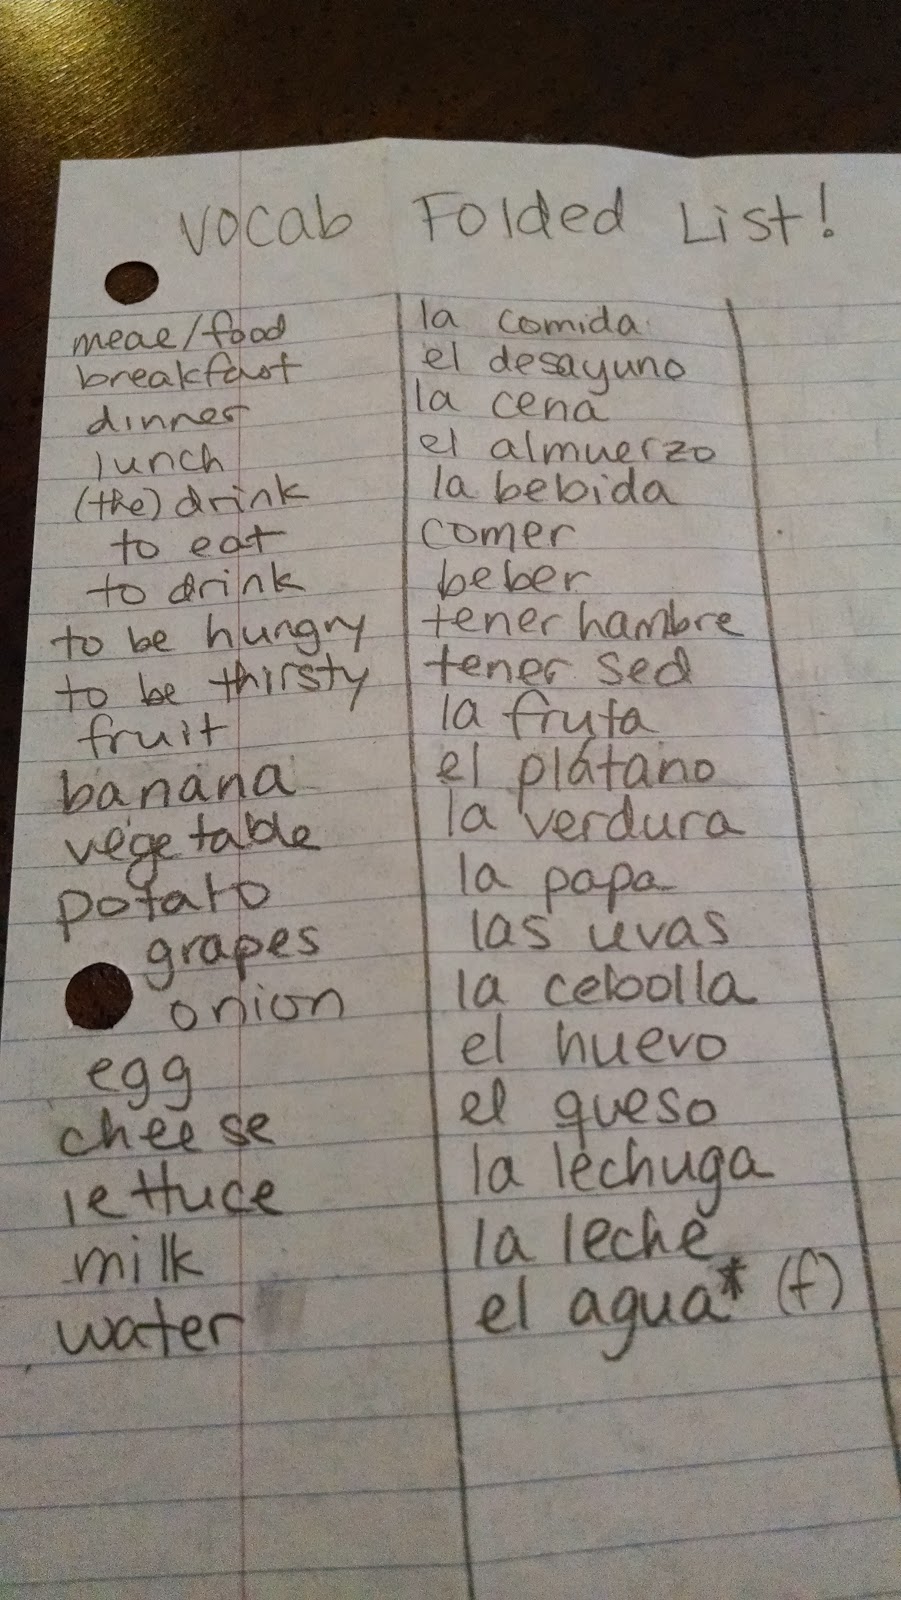 Vocab Folded List!
meal/food la comida
breakfast el desayuno
dinner la cena
lunch el almuerzo
(the) drink la bebida
to eat comer
to drink beber
to be hungry tener hambre
to be thirsty tener sed
fruit la fruta
banana el plátano
vegetable la verdura
potato la papa
grapes las uvas
onion la cebolla
egg el huevo
cheese el queso
lettuce la lechuga
milk la leche
water el agua* (f)